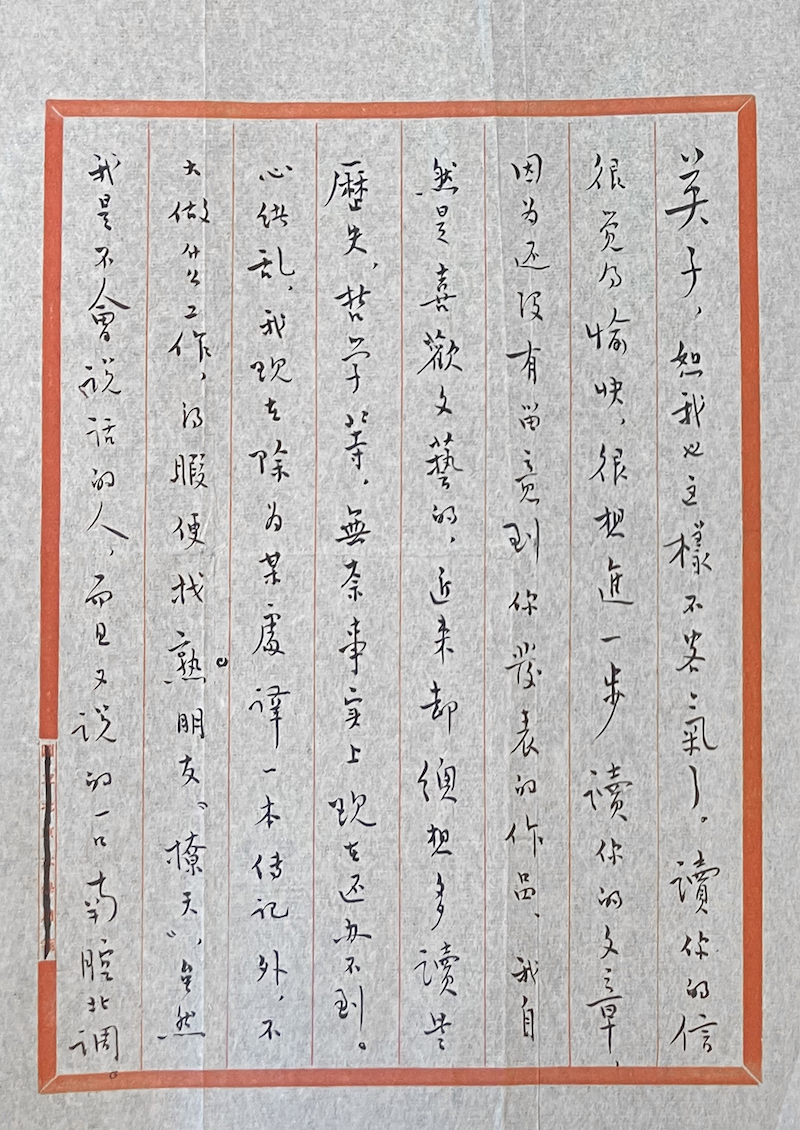 英子，恕我也这樣不客氣了。讀你的信
很觉得愉快，很想進一步讀你的文章，
因为还没有留意到你發表的作品、我自
然是喜歡文藝的，近来却颇想多讀些
歷史，哲学等，無奈事实上现在还办不到。
心绪乱，我现在除为某處譯一本传记外，不
大做什么工作，得暇便找熟朋友“撩天”，虽然
我是不會说话的人，而且又说的一口南腔北调。